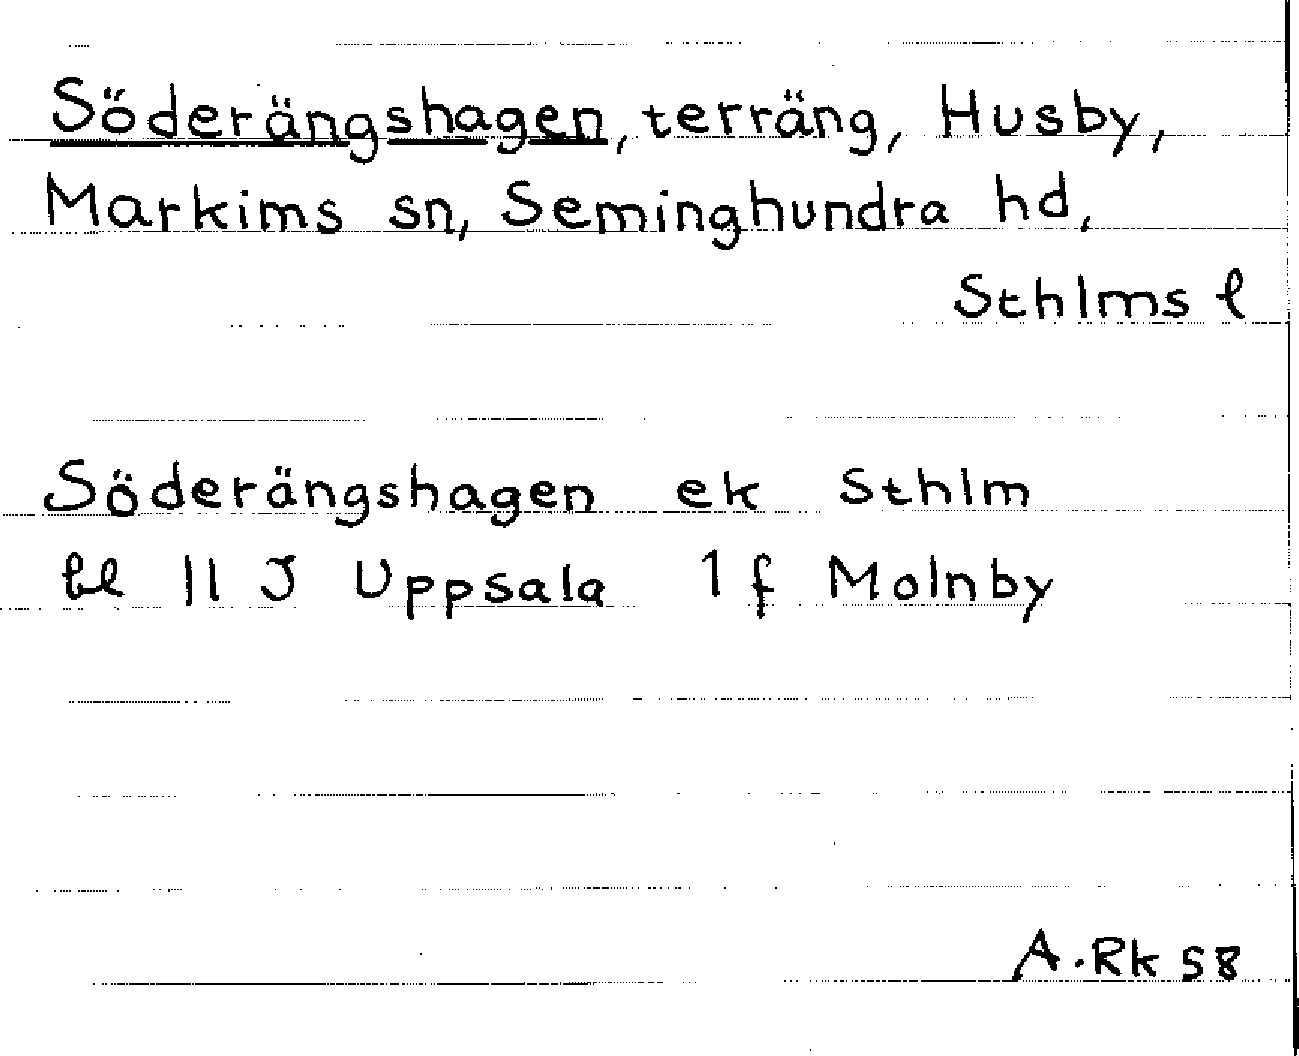 Söderängshagen, terräng, Husby,
Markims sn, Seminghundra hd,
Sthlms l
Söderängshagen ek Sthlm
bl 11 J Uppsala 1 f Molnby
A.Rk 58